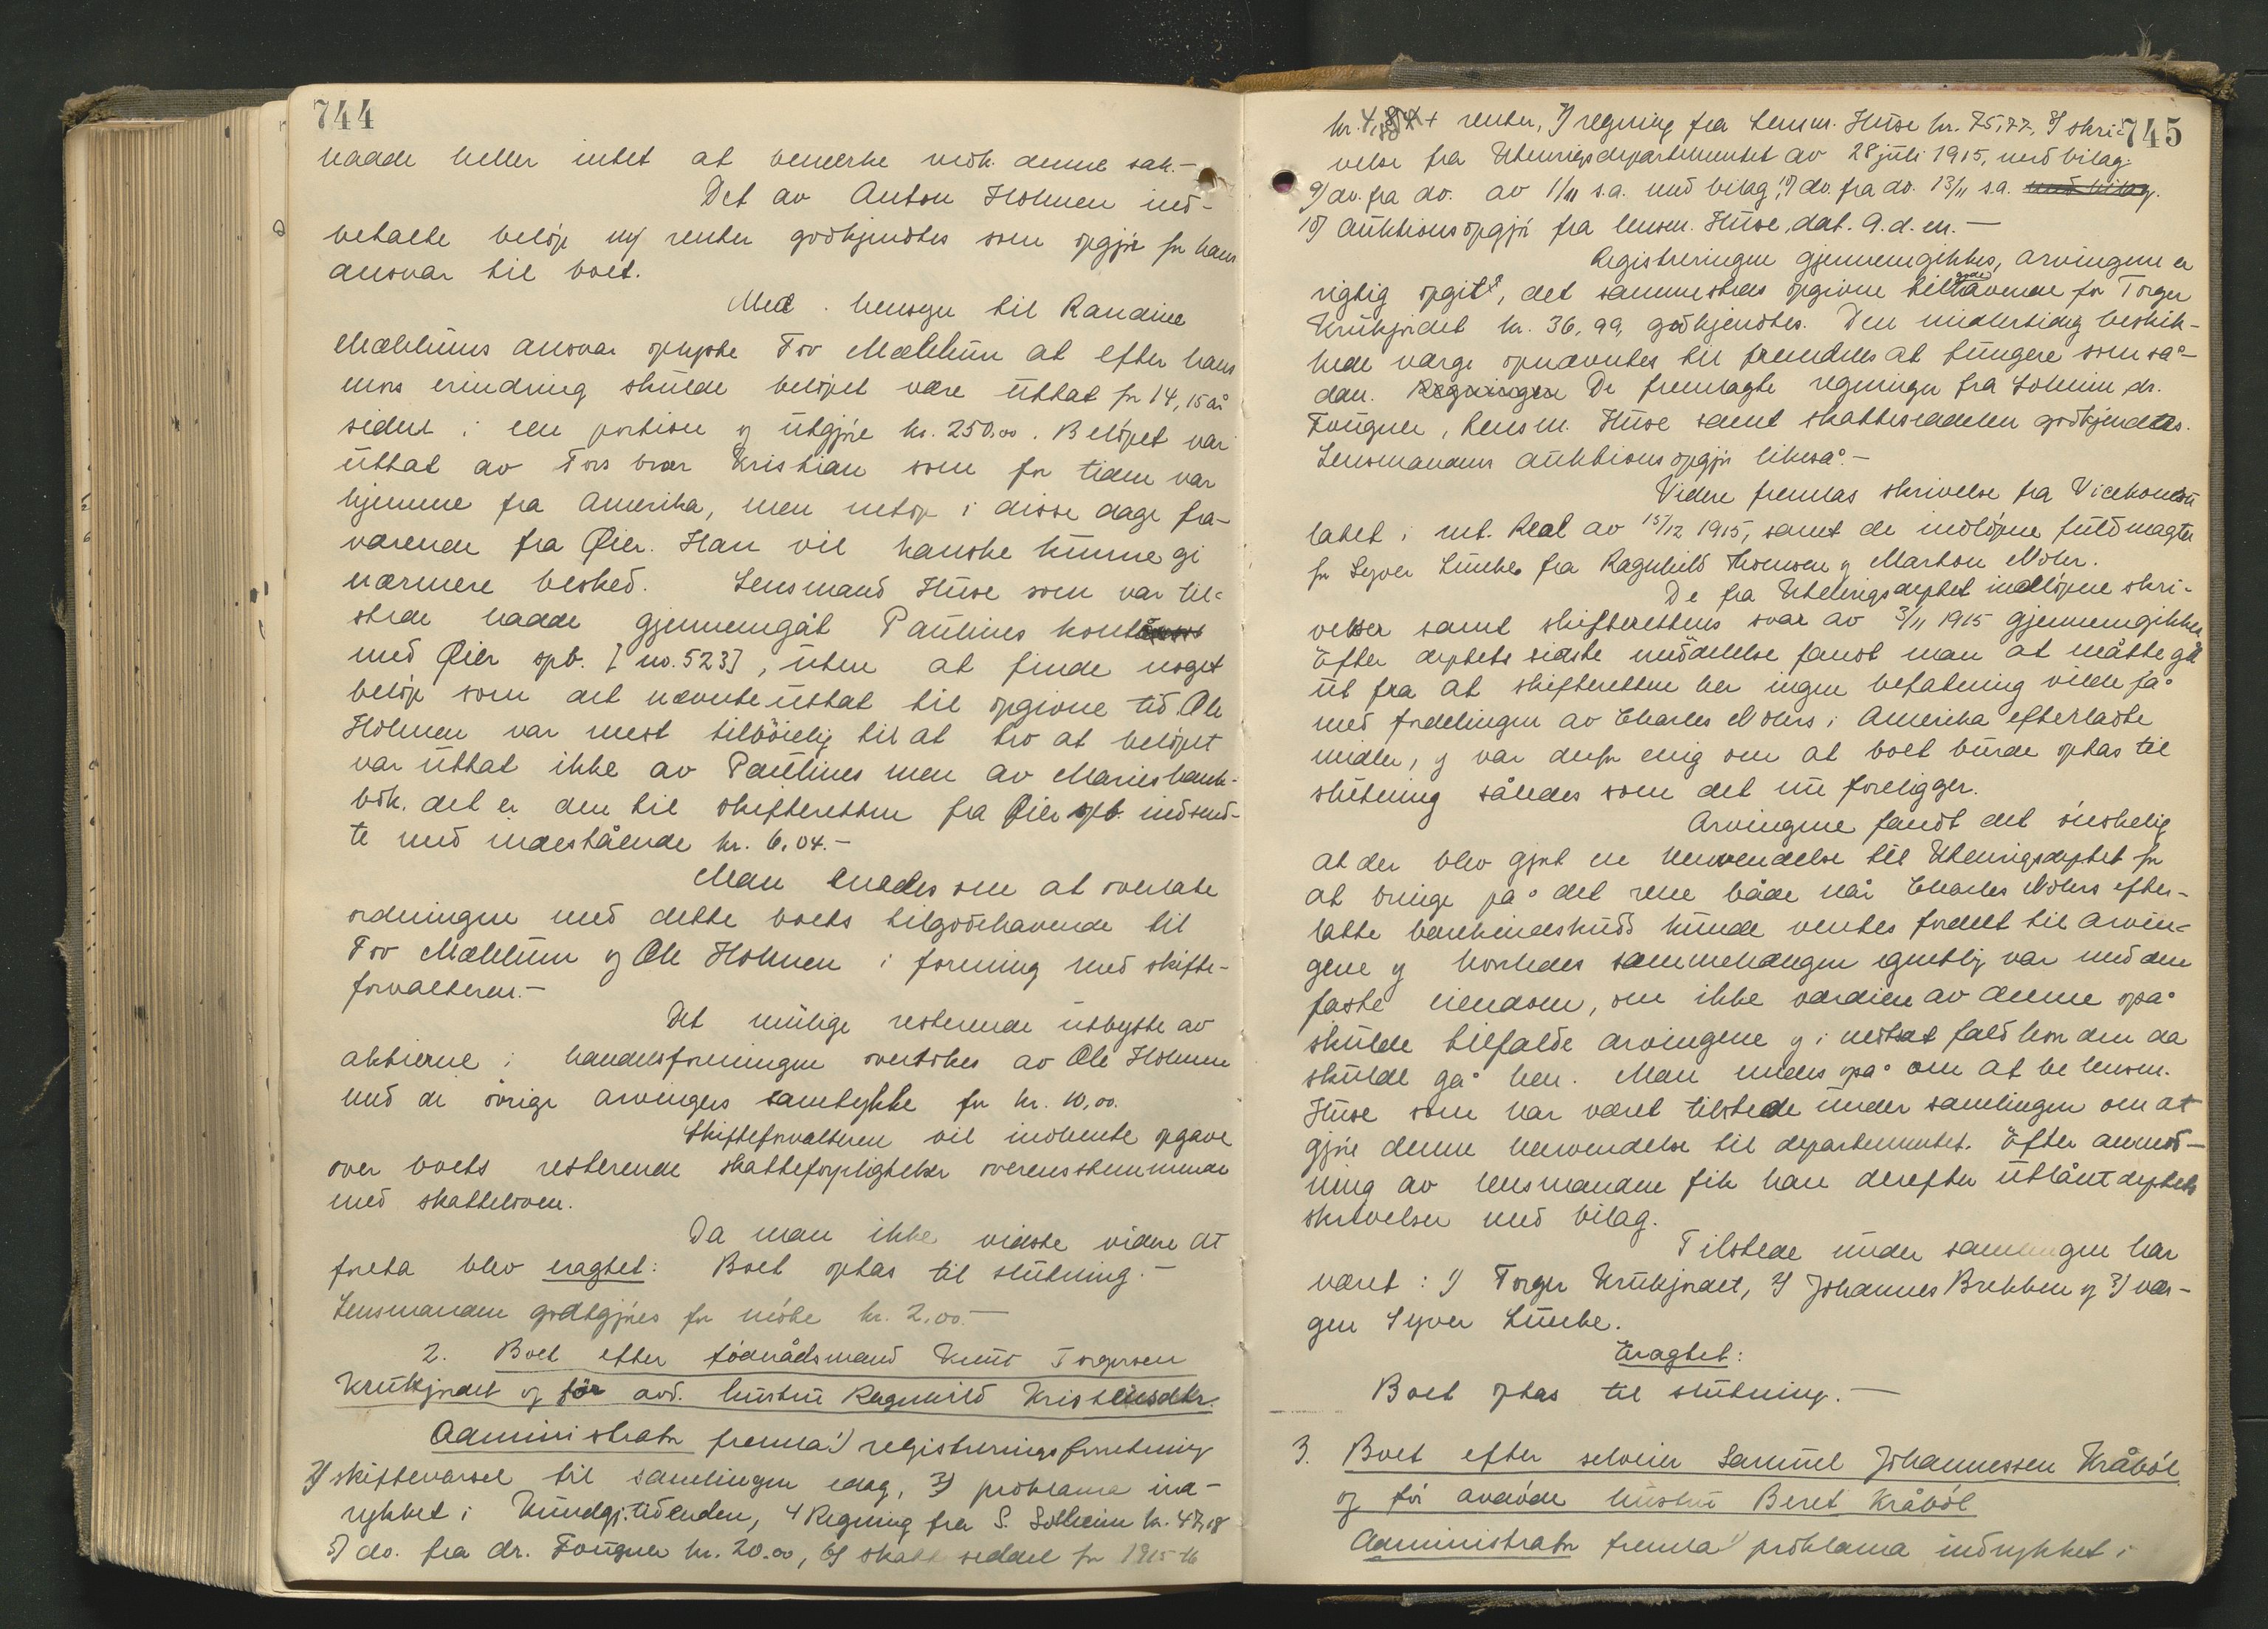 744
hadde heller intet at bemerke vedk. denne sak.-
Det av Anton Holmen ind-
betalte beløp m/ renter godkjendtes som opgjør for hans
ansvar til boet.
Med hensyn til Randine
Mælums ansvar oplyste Tov Mælum at efter hans
mors erindring skulde beløpet være uttat for 14, 15 år
siden i een portion og utgjøre kr. 250.00. Beløpet var
uttat av Tovs bror Kristian som for tiden var
hjemme fra Amerika, men netop i disse dage fra-
værende fra Øier. Han vil kanske kunne gi
nærmere besked. Lensmand Huse som var til-
stede hadde gjennemgåt Paulines konto
med Øier spb. [no. 523], uten at finde noget
beløp som det nævnte uttat til opgivne tid. Ole
Holmen var mest tilbøielig til at tro at beløpet
var uttat ikke av Paulines men av Maries bank-
bok, det er den til skifteretten fra Øier spb. indsend-
te med indestående kr. 6.04.-
Man enedes om at overlate
ordningen med dette boets tilgodehavende til
Tov Mælum og Ole Holmen i forening med skifte-
forvalteren.-
Det mulige resterende utbytte av
aktierne i handelsforeningen overtokes av Ole Holmen
med de øvrige arvingers samtykke for kr. 10,00.
Skifteforvalteren vil indhente opgave
over boets resterende skatteforpligtelser overensstemmende
med skatteloven.
Da man ikke vidste videre at
foreta blev eragtet: Boet optas til slutning.-
Lensmanden godtgjøres for møte kr. 2.00.-
2. Boet efter føderådsmand Knut Torgersen
Krukjordet og før avd. hustru Ragnhild Kristensdtr.
Administrator fremla 1) registreringsforretning
2) skiftevarsel til samlingen idag, 3) proklama ind-
rykket i Kundgj.tidenden, 4 Regning fra S. Solheim kr. 47,18
5) do. fra dr. Fougner kr. 20.00, 6) skatteseddel for 1915-16
745
kr. 4, + renter, 7) regning fra Lensm. Huse kr. 75,77, 8) skri-
velse fra Utenrigsdepartementet av 28 juli 1915, med bilag.
9) do. fra do. av 1/11 s.a. med bilag, do. fra do. 13/11 s.a. med bilag.
10) auktionsopgjør fra lensm. Huse, dat. 9. d.m.-
Registreringen gjennemgikkes, arvingene er
rigtig opgit, det sammesteds opgivne tilgodehavende for Torger
Krukjordet kr. 36,99, godkjendtes. Den midlertidig beskik-
kede værge opnævntes til fremdeles at fungere som så-
dan. Regningen De fremlagte regninger fra Solheim, dr.
Fougner, lensm. Huse samt skatteseddelen godkjendtes.
Lensmandens auktionsopgjør likeså.-
Videre fremlas skrivelse fra Vicekonsu
latet i av 15/12 1915, samt de indløpne fuldmagter
for Syver Lunke fra Ragnhild Thomsen og Marton Nohr.
De fra Utenrigsdeptet indløpne skri-
velser samt skifterettens svar av 3/11 1915 gjennemgikkes.
Efter deptets sidste meddelelse fandt man at måtte gå
ut fra at skifteretten her ingen befatning vilde få
med fordelingen av Charles Nohrs i Amerika efterladte
midler, og var derfor enig om at boet burde optas til
slutning således som det nu foreligger.
Arvingene fandt det ønskelig
at der blev gjort en henvendelse til Utenrigsdeptet for
at bringe på det rene både når Charles Nohrs efter-
latte bankindskudd kunde ventes fordelt til arvin-
gene og hvorledes sammenhængen egentlig var med den
faste eiendom, om ikke værdien av denne også
skulde tilfalde arvingene og i motsat fald hvor den da
skulde gå hen. Man enedes også om at be lensm.
Huse som har været tilstede under samlingen om at
gjøre denne henvendelse til departementet. Efter anmod-
ning av lensmanden fik han derefter utlånt deptets
skrivelser med bilag.
Tilstede under samlingen har
været: 1) Torger Krukjordet, 2) Johannes Brekken og 3) vær-
gen Syver Lunke.
Eragtet:
Boet optas til slutning.-
3. Boet efter selveier Samuel Johannessen Kråbøl
og før avdøde hustru Beret Kråbøl
Administrator fremla 1) proklama indrykket i